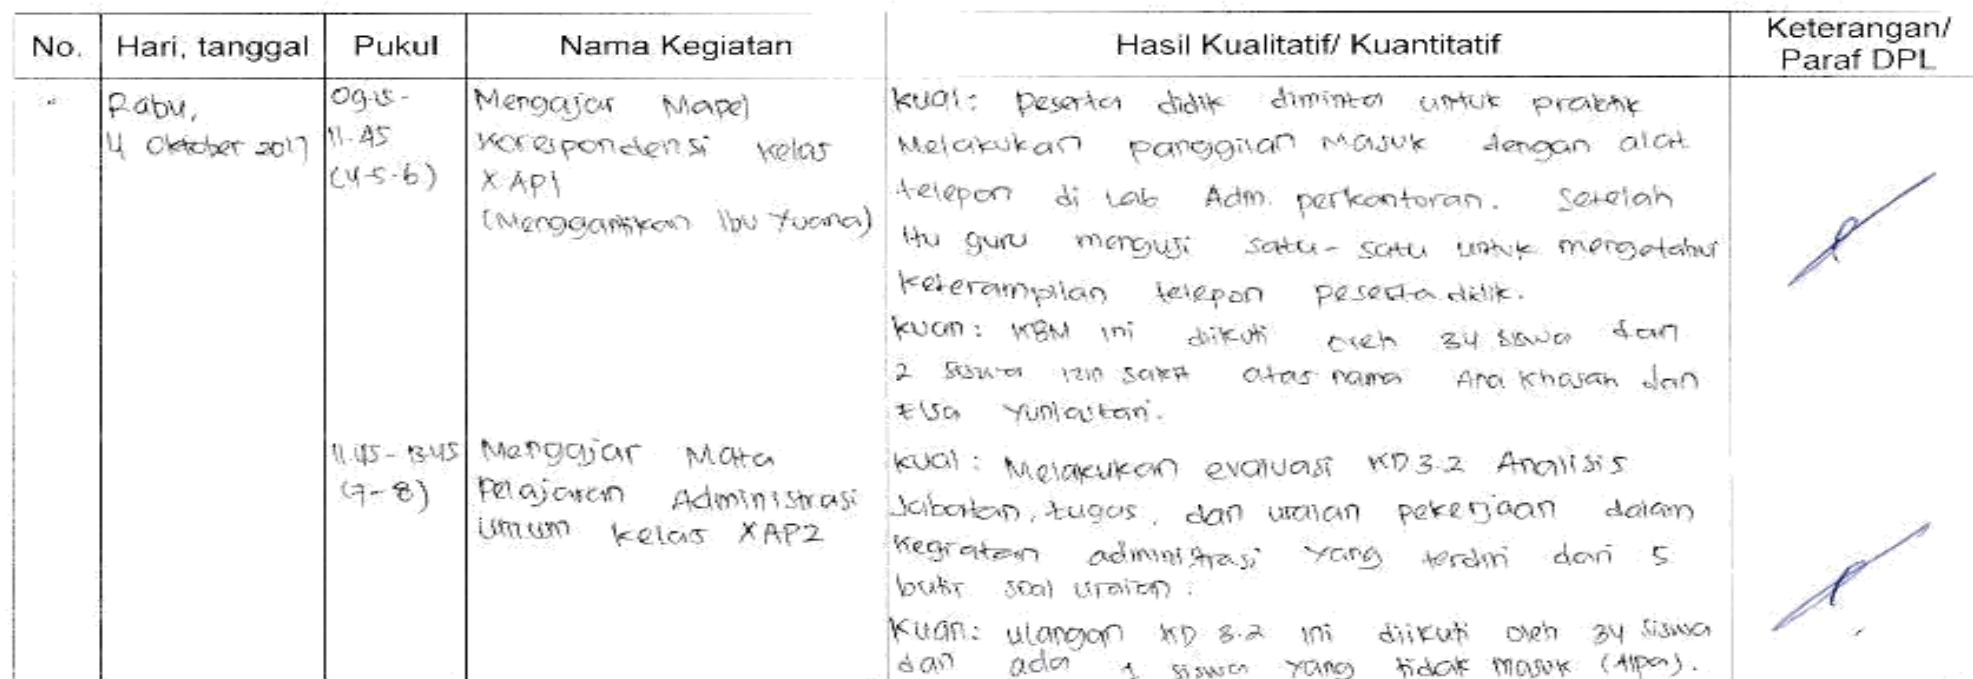 No.
Hari, tanggal
Pukul
Nama Kegiatan
Hasil Kualitatif/ Kuantitatif
Keterangan/
Paraf DPL
Rabu,
4 Oktober 2017
09.15-
11.45
(4-5-6)
Mengajar Mapel
Korespondensi kelas
X AP1
(Menggantikan Ibu Yuana)
Kual: peserta didik diminta untuk praktik
Melakukan panggilan masuk dengan alat
telepon di Lab Adm. perkantoran. Setelah
itu guru menguji satu-satu untuk mengetahui
keterampilan telepon peserta didik.
Kuan: KBM ini diikuti oleh 34 siswa dan
2 siswa izin sakit atas nama Ana Khasah dan
Elsa Yuniastari.
11.45-13.45
(7-8)
Mengajar Mata
Pelajaran Administrasi
Umum kelas XAP2
Kual: Melakukan evaluasi KD 3.2 Analisis
Jabatan, tugas, dan uraian pekerjaan dalam
Kegiatan administrasi yang terdiri dari 5
butir soal uraian.
Kuan: ulangan KD 3.2 ini diikuti oleh 34 siswa
dan ada 1 siswa yang tidak masuk (Alpa).